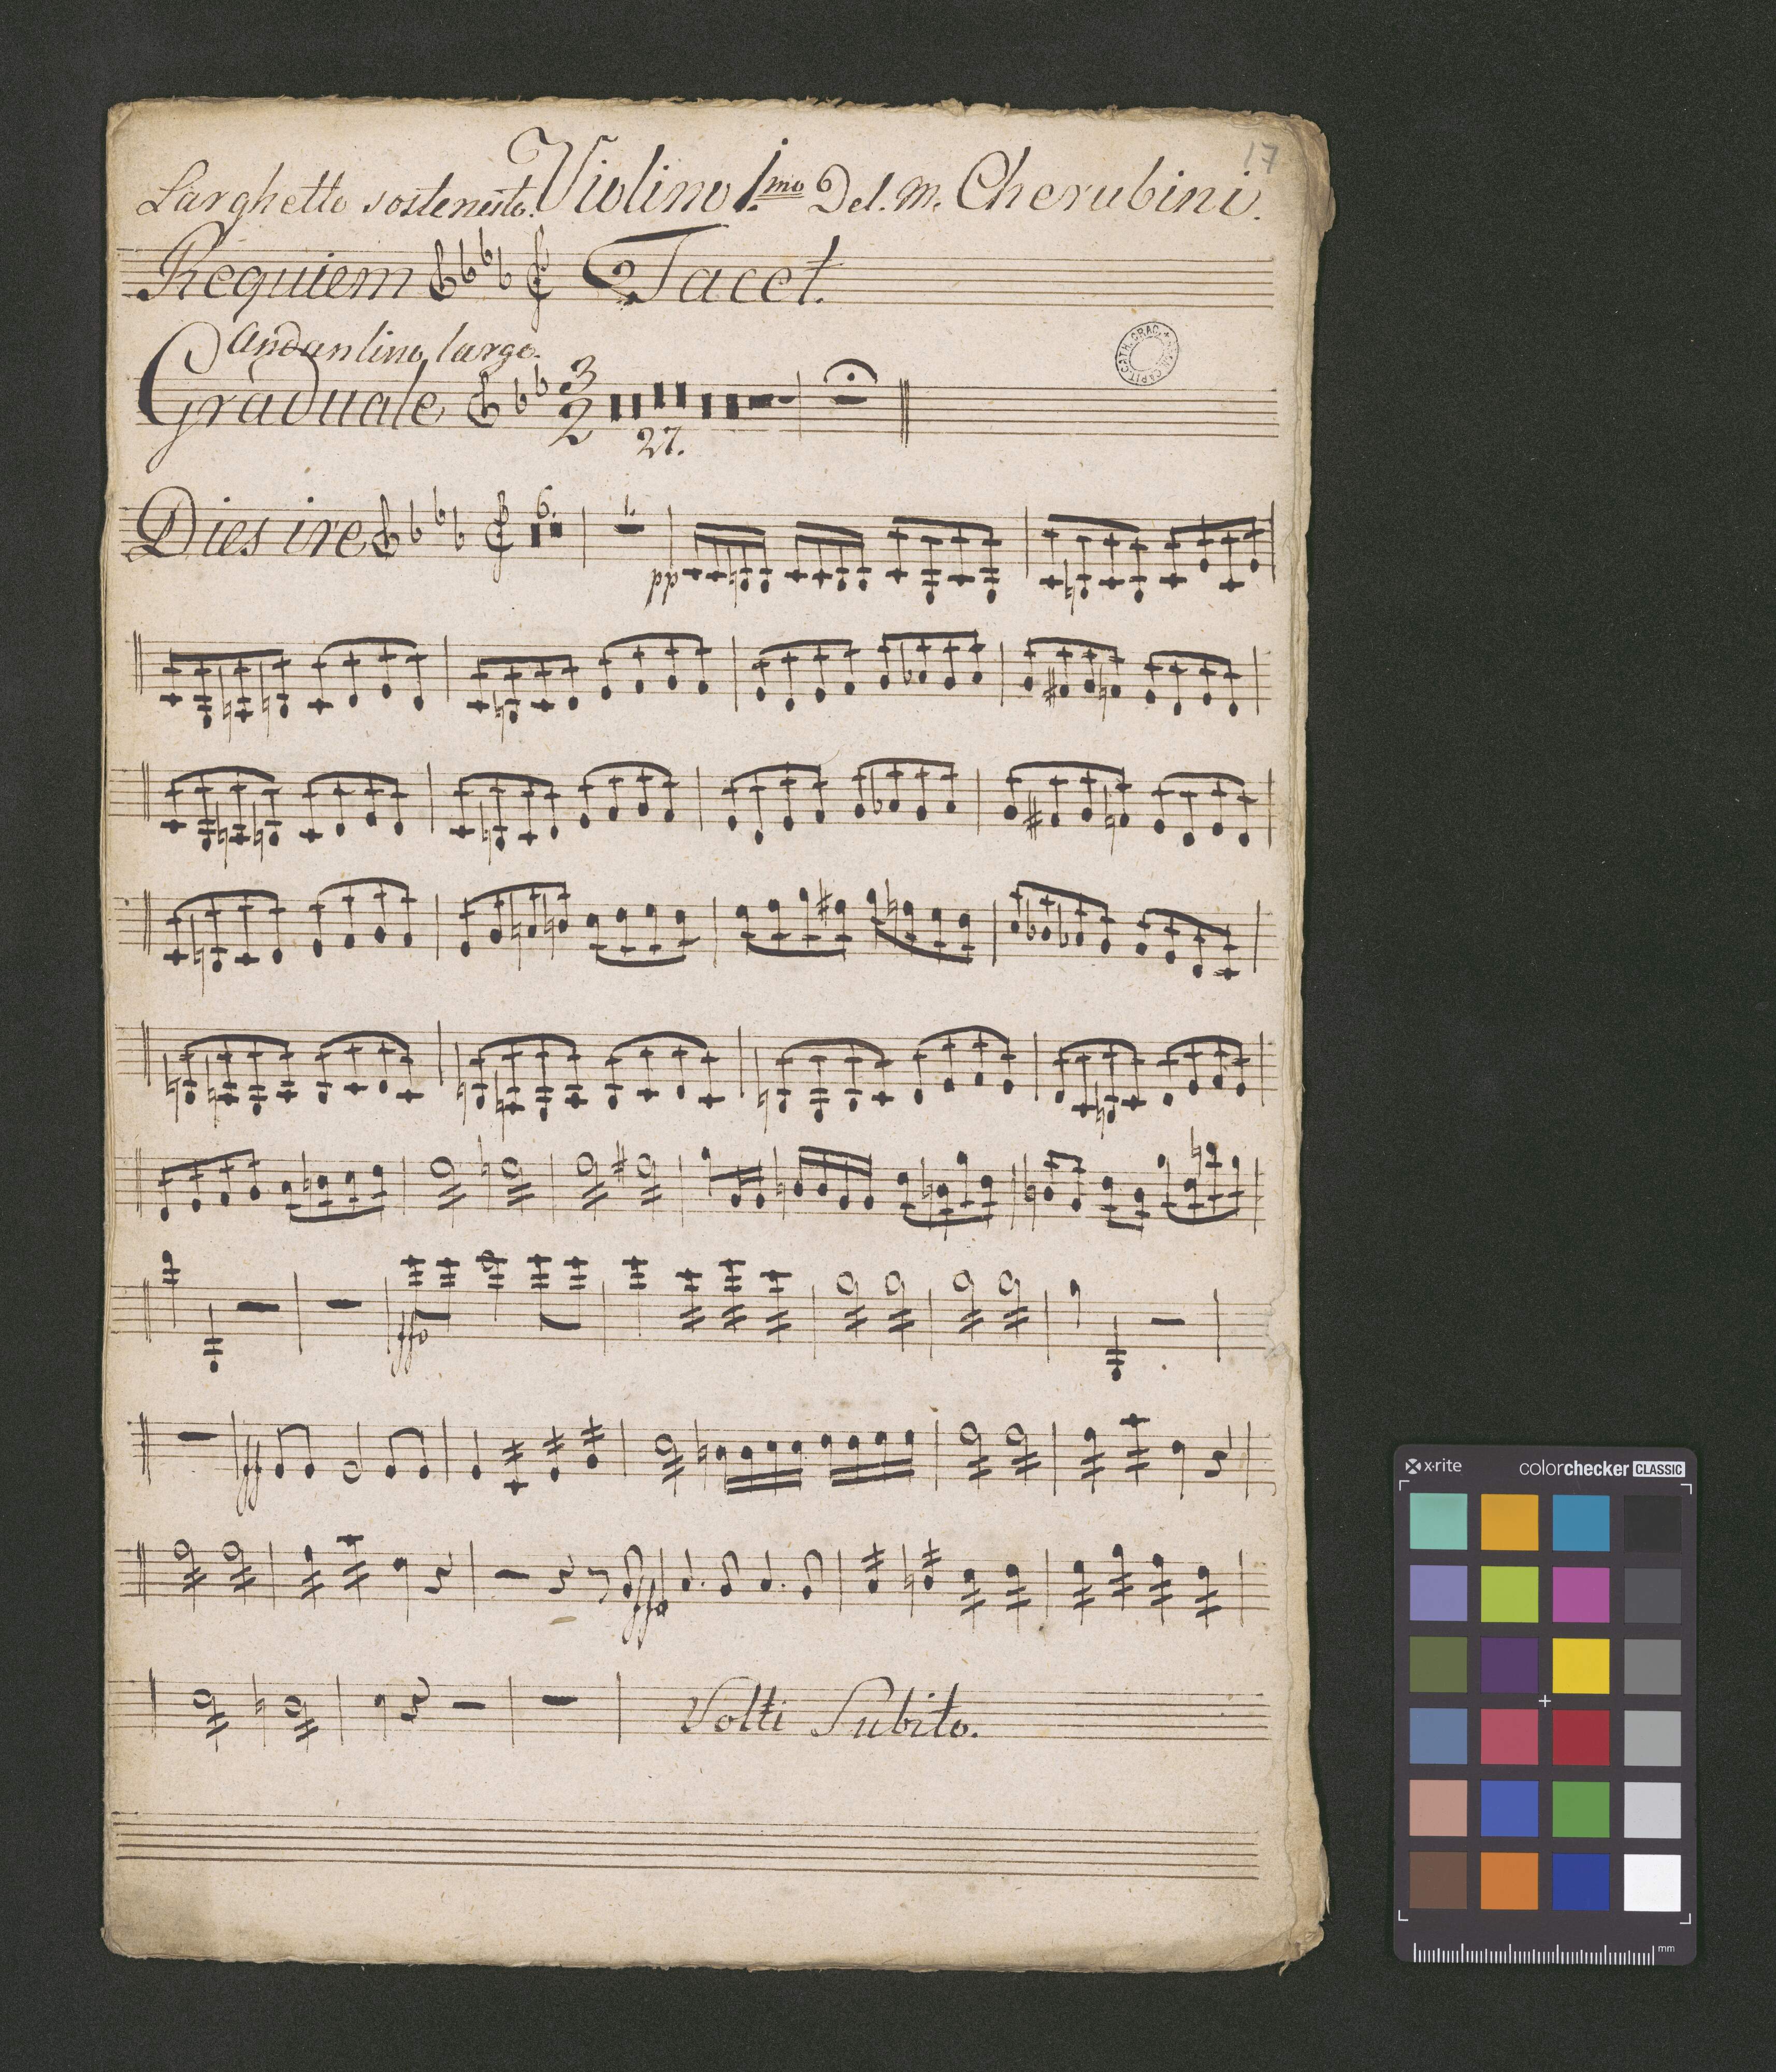 17
Larghetto sostenuto. Violino 1.mo Del. M. Cherubini.
Requiem Tacet.
Andantino largo.
Graduale 3 2
27.
Dies ire 6. 1.
pp
ffo
ff
ffo
Volti Subito.
x·rite colorchecker CLASSIC
mm